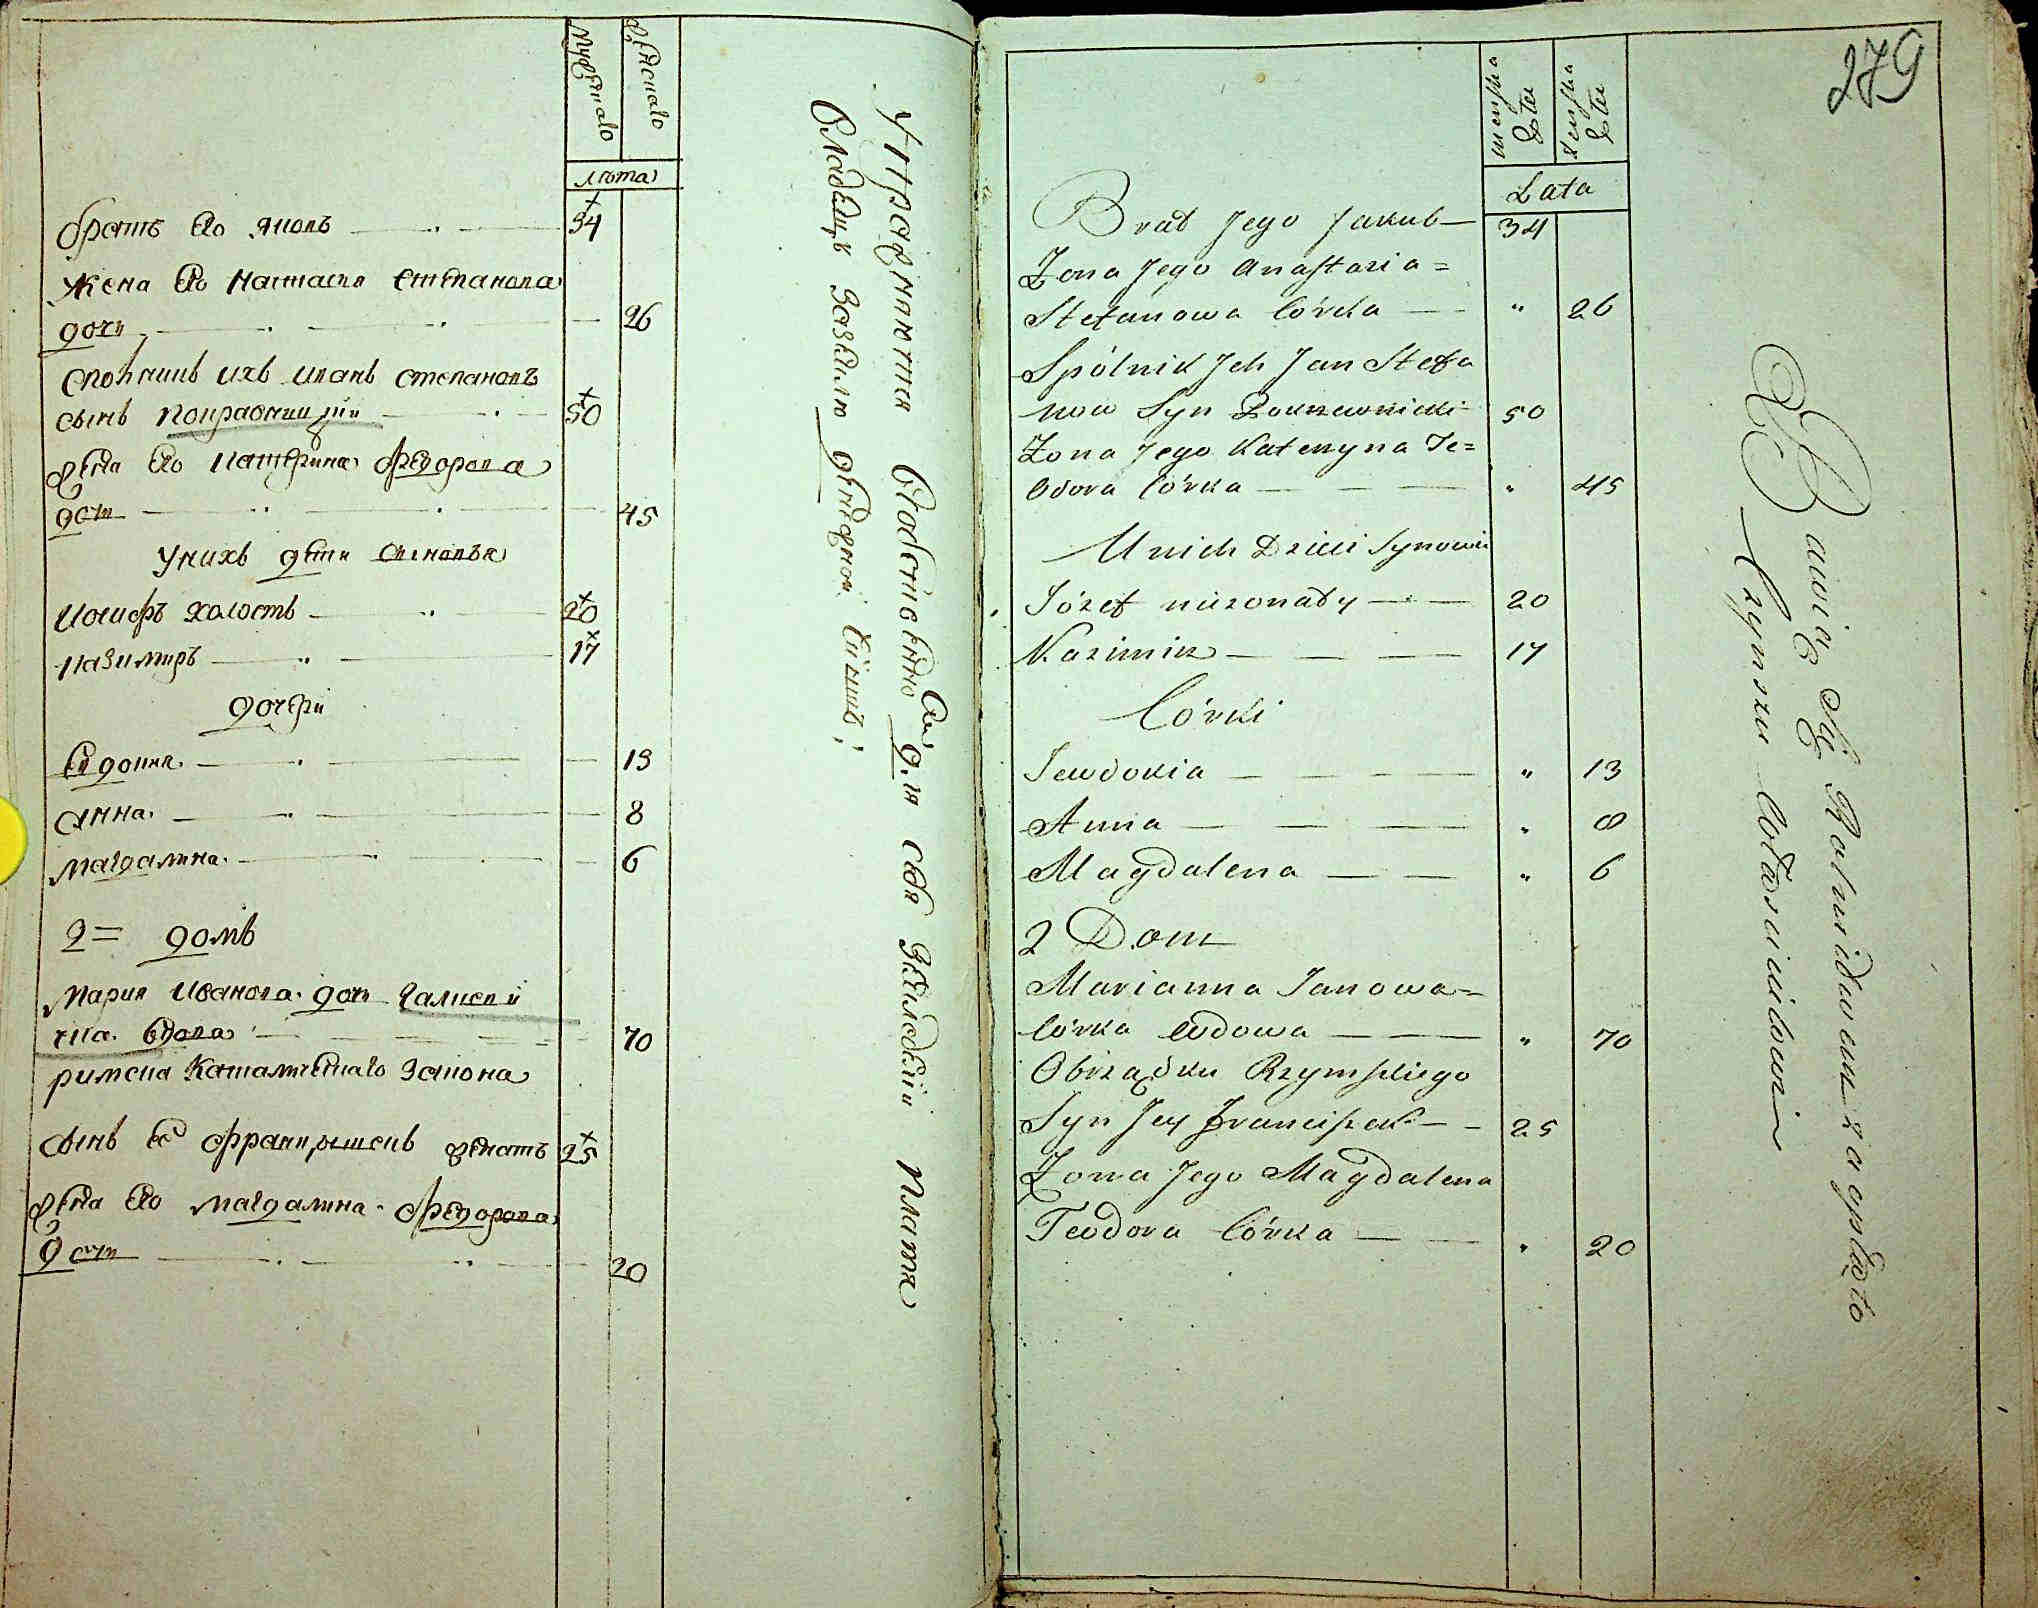 Мужескаго
Женскаго
лѣта
братъ Его Яковъ 34
жена Его Настасия Степанова
дочь 26
спольникъ ихъ иванъ степановъ
сынъ 50
жена Его Катерина Федорова
дочь 45
У нихъ дѣти сыновья
Иосифъ холостъ 20
Казимиръ 17
дочери
Евдокия 13
Анна 8
Магдалина 6
2= домъ
Мария Иванова дочь
вдова 70
римска Католическаго Закона
сынъ Ее Францышекъ женатъ 25
жена Его Магдалина Федорова
дочь 20
Упражняются Собственно Сами для себя Земледелии платя
Владелцу
279
męzka
Płeć
żeńska
Płeć
Lata
Brat Jego Jakub 34
Zona Jego Anastazia=
Stefanowa Córka " 26
Spólnik Jch Jan Stefa
now Syn 50
Zona Jego Katerzyna Te=
odora Córka " 45
U nich Dzieci Synowie
Józef niezonaty 20
Kazimierz 17
Córki
Jewdokia " 13
Anna " 8
Magdalena " 6
2 Dom
Marianna Janowa=
Córka wdowa " 70
Obrządku Rzymskiego
Syn Jey Franciszek 25
Zona Jego Magdalena
Teodora Córka " 20
Bawią Się Rolnictwem za opłatą
Czynszu Właścicielowi